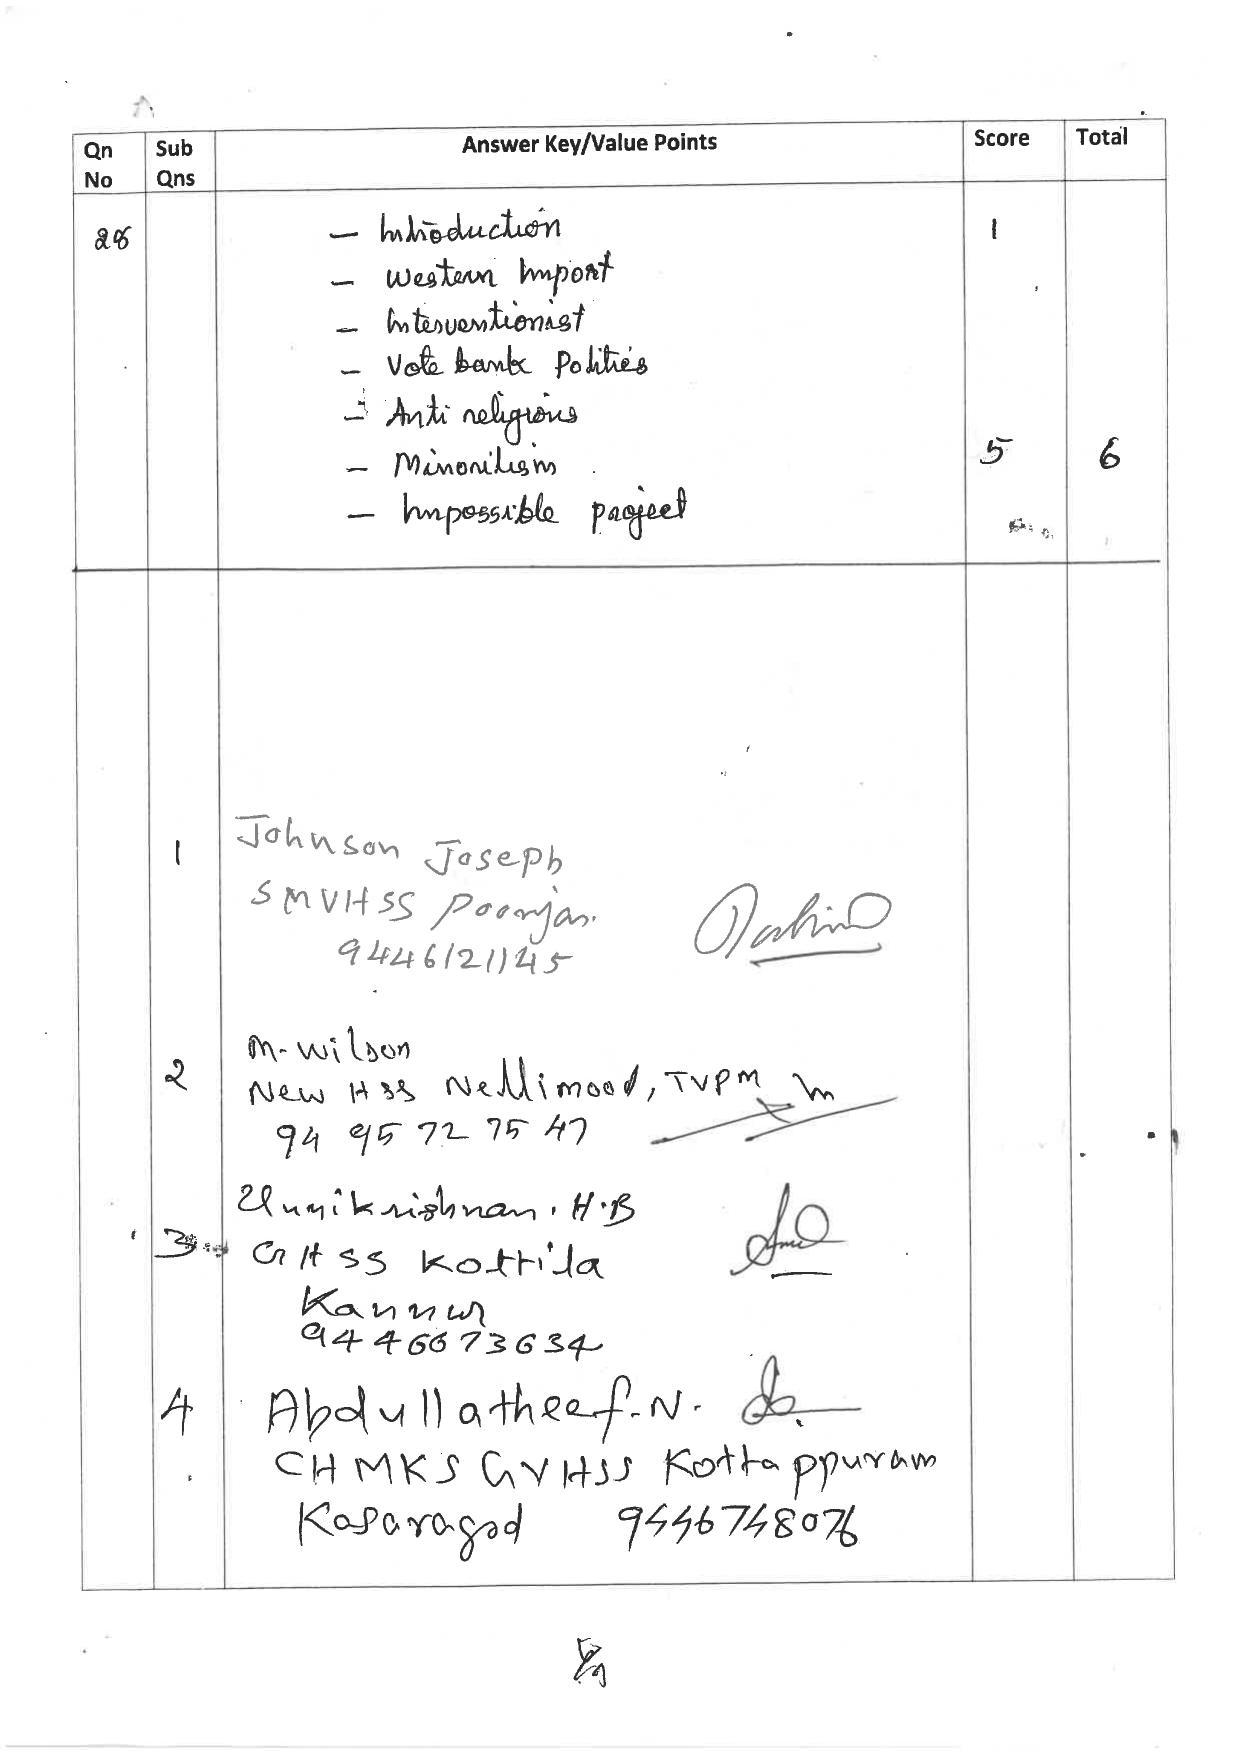 Qn No
Sub Qns
Answer Key/Value Points
Score
Total
28
– Introduction
1
– Western Import
– Interventionist
– Vote bank Politics
– Anti religious
– Minoritism
5
6
– Impossible project
1
Johnson Joseph
SMVHSS Poonjar.
9446121145
2
M. Wilson
New HSS Nellimood, TVPM
94 95 72 75 47
3
Unnikrishnan. H.B
GHSS Kottila
Kannur
9446673634
4
Abdullatheef. N.
CHMKS GVHSS Kottappuram
Kasaragod 9446748076